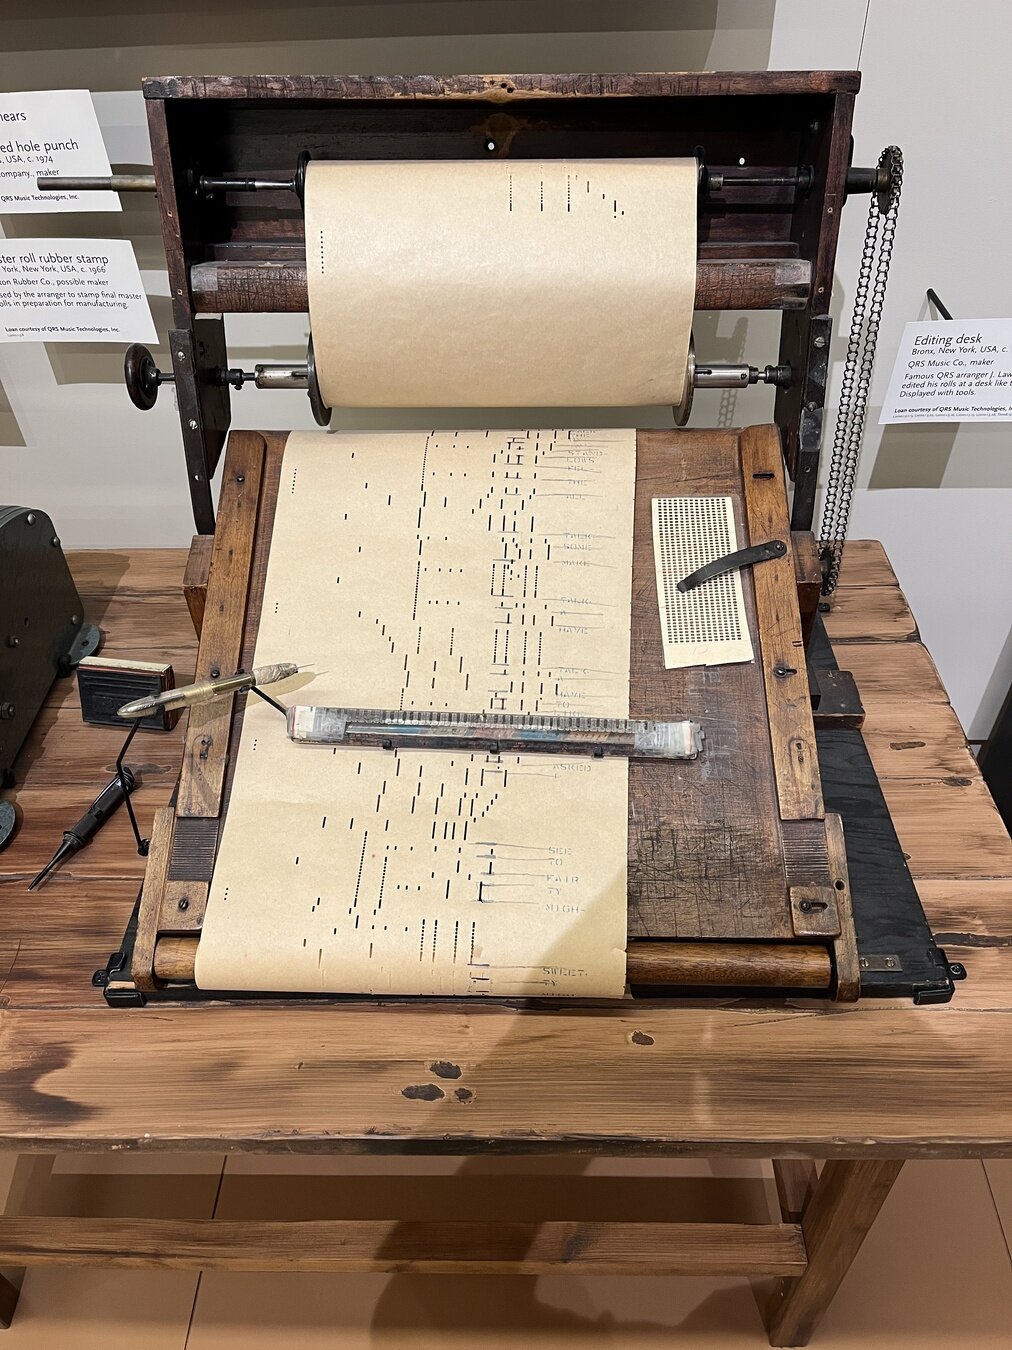 ed hole punch
USA, c. 1974
company., maker
QRS Music Technologies, Inc.
ster roll rubber stamp
York, New York, USA, c. 1966
on Rubber Co., possible maker
sed by the arranger to stamp final master
olls in preparation for manufacturing.
Loan courtesy of QRS Music Technologies, Inc.
Editing desk
Bronx, New York, USA, c.
QRS Music Co., maker
Famous QRS arranger J. Law
edited his rolls at a desk like t
Displayed with tools.
Loan courtesy of QRS Music Technologies, In
THE
STAND-
LOWS
FEL-
THE
ALL
TALK
SOME
MAKE
TALK
A
HAVE
TALK
A
HAVE
TO
ASKED
I
SEE
TO
FAIR
TY
MIGH-
SWEET,
TY